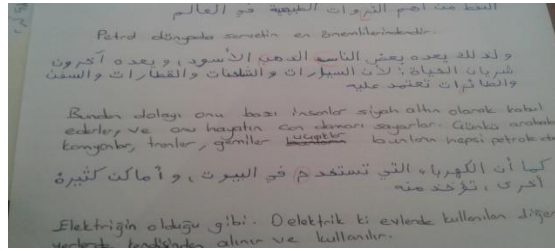 النفط من أهم الثروات الطبيعية في العالم
Petrol dünyada servetin en önemlilerindendir.
ولذلك يعده بعض الناس الذهب الأسود، و يعده آخرون
شريان الحياة؛ لأن السيارات و الشاحنات والقطارات والسفن
والطائرات تعتمد عليه
Bundan dolayı onu bazı insanlar siyah altın olarak kabul
ederler, ve onu hayatın can damarı sayarlar. Çünkü arabalar
kamyonlar, trenler, gemiler uçaklar bunların hepsi petrole
كما أن الكهرباء التي تستخدم في البيوت، و أماكن كثيرة
أخرى، تؤخذ منه
Elektriğin olduğu gibi. O elektrik ki evlerde kullanılan diğer
yerlerde kendisinden alınır ve kullanılır.